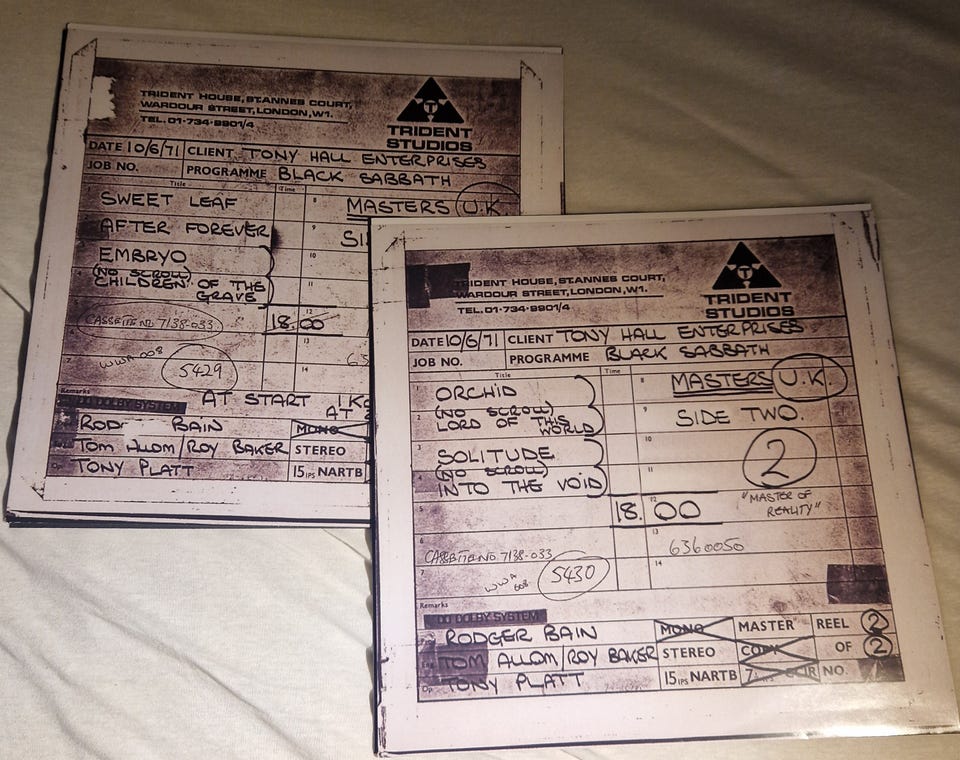 TRIDENT HOUSE, ST.ANNES COURT,
WARDOUR STREET, LONDON, W1.
TEL.01-734-9901/4
TRIDENT
STUDIOS
DATE 10/6/71 CLIENT TONY HALL ENTERPRISES
JOB NO. PROGRAMME BLACK SABBATH
Title Time
SWEET LEAF 8 MASTERS U.K.
AFTER FOREVER 9 SI
EMBRYO 10
(NO SCROLL)
4 CHILDREN OF THE 11
GRAVE
CASSETTE NO 7138-033 18.00 12
13 63
7 WWA 008 5429 14
Remarks AT START 1K
DOLBY SYSTEM AT
ROD BAIN MONO
TOM ALLOM/ROY BAKER STEREO
Op TONY PLATT 15 IPS NARTB
TRIDENT HOUSE, ST.ANNES COURT,
WARDOUR STREET, LONDON, W1.
TEL.01-734-9901/4
TRIDENT
STUDIOS
DATE 10/6/71 CLIENT TONY HALL ENTERPRISES
JOB NO. PROGRAMME BLACK SABBATH
Title Time
1 ORCHID 8 MASTERS U.K.
2 (NO SCROLL) 9 SIDE TWO.
LORD OF THIS
WORLD
3 SOLITUDE 10 2
(NO SCROLL)
4 INTO THE VOID 11
5 18.00 12 "MASTER OF
REALITY"
6 CASSETTE NO. 7138-033 13 6360050
7 WWA 008 5430 14
Remarks
DOLBY SYSTEM
RODGER BAIN MONO MASTER REEL 2
TOM ALLOM/ROY BAKER STEREO COPY OF 2
Op TONY PLATT 15 IPS NARTB 7½ IPS CCIR NO.